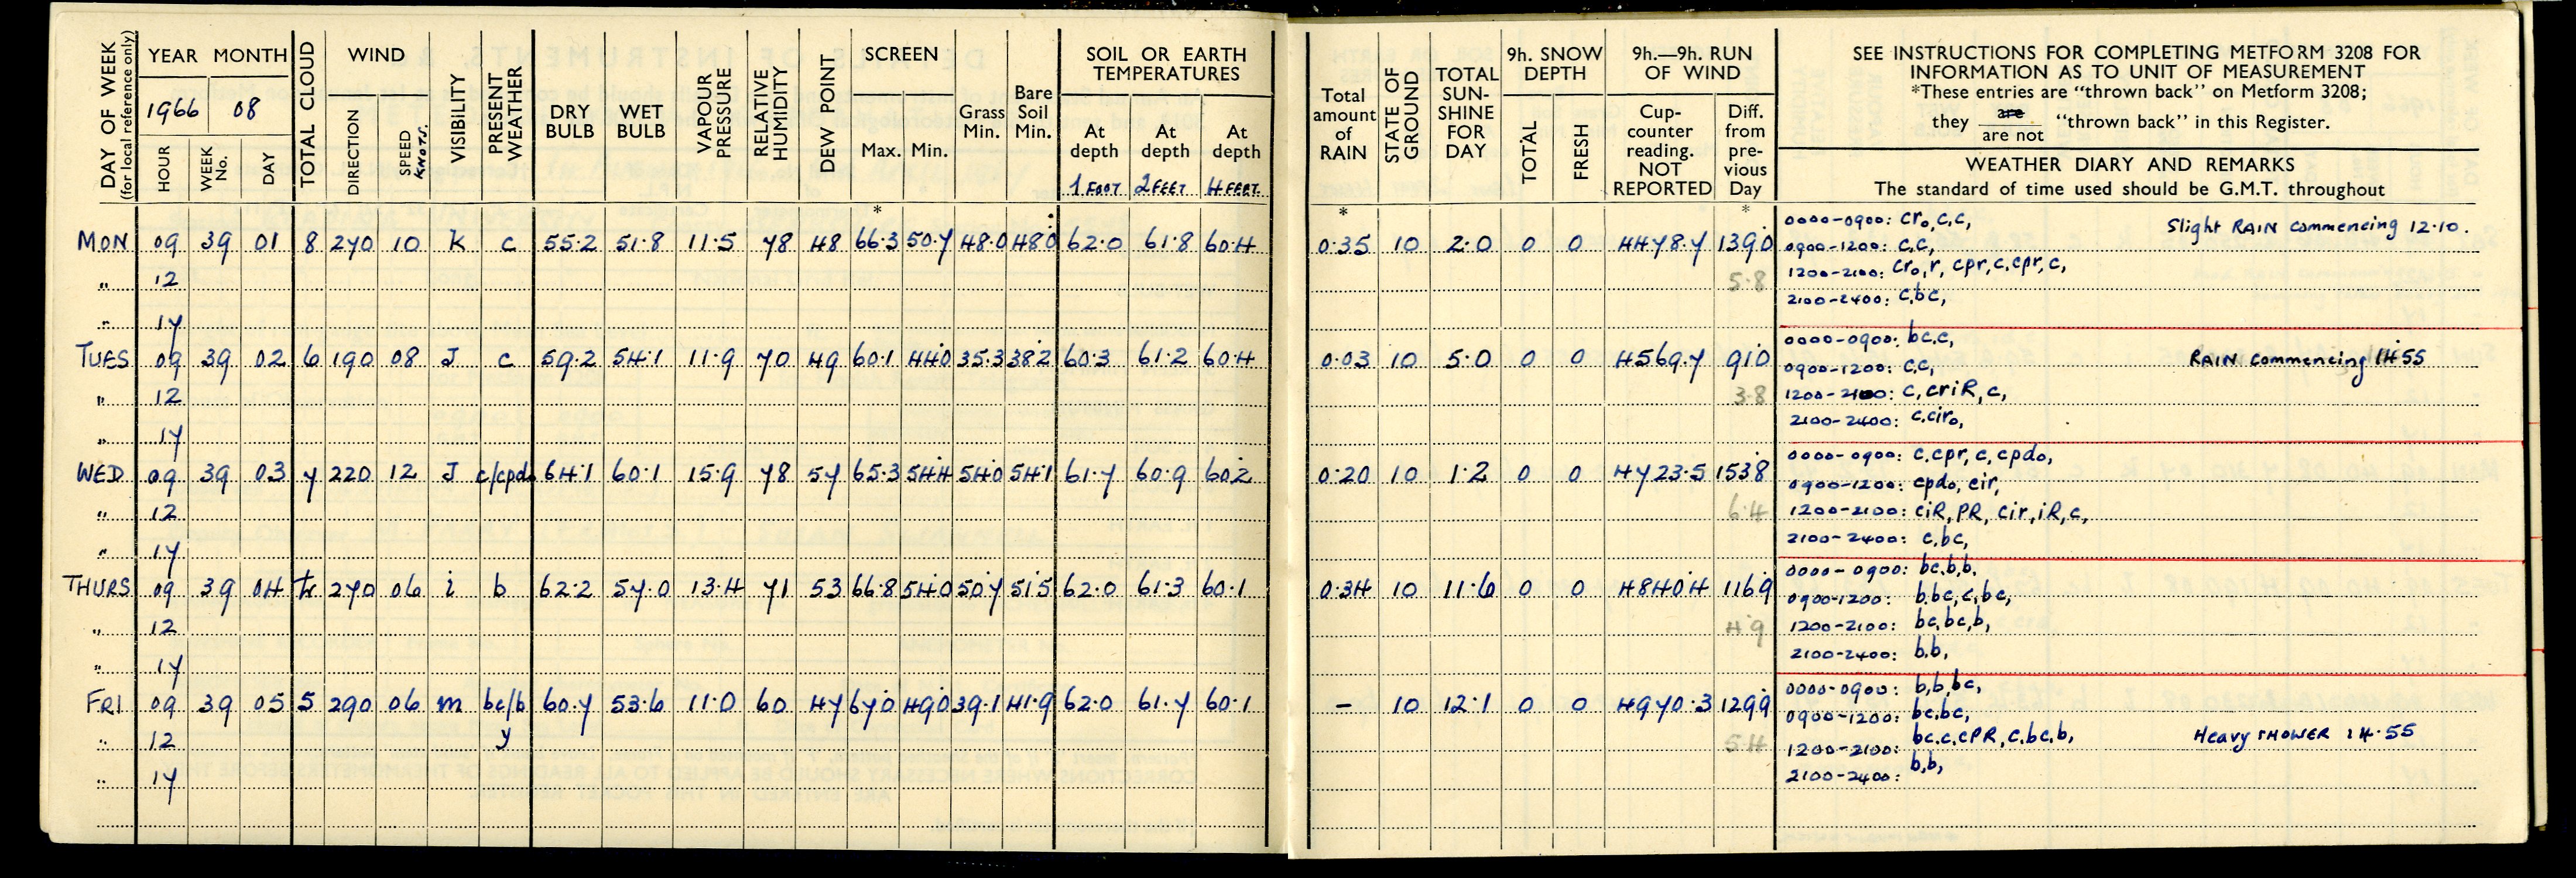 DAY OF WEEK (for local reference only) YEAR MONTH TOTAL CLOUD WIND VISIBILITY PRESENT WEATHER DRY BULB WET BULB VAPOUR PRESSURE RELATIVE HUMIDITY DEW POINT SCREEN Grass Min. Bare Soil Min. SOIL OR EARTH TEMPERATURES
1966 08
HOUR WEEK No. DAY DIRECTION SPEED KNOTS. Max. Min. At depth At depth At depth
1 FOOT 2 FEET 4 FEET
*
MON 09 39 01 8 270 10 K c 55.2 51.8 11.5 78 48 66.3 50.7 48.0 48.0 62.0 61.8 60.4
" 12
" 17
TUES 09 39 02 6 190 08 J c 59.2 54.1 11.9 70 49 60.1 44.0 35.3 38.2 60.3 61.2 60.4
" 12
" 17
WED 09 39 03 7 220 12 J c/cpdo 64.1 60.1 15.9 78 57 65.3 54.4 54.0 54.1 61.7 60.9 60.2
" 12
" 17
THURS 09 39 04 tr 270 06 i b 62.2 57.0 13.4 71 53 66.8 54.0 50.7 51.5 62.0 61.3 60.1
" 12
" 17
FRI 09 39 05 5 290 06 m bc/b 60.7 53.6 11.0 60 47 67.0 49.0 39.1 41.9 62.0 61.7 60.1
" 12 y
" 17
Total amount of RAIN STATE OF GROUND TOTAL SUN-SHINE FOR DAY 9h. SNOW DEPTH 9h.—9h. RUN OF WIND
TOTAL FRESH Cup-counter reading. NOT REPORTED Diff. from pre-vious Day
SEE INSTRUCTIONS FOR COMPLETING METFORM 3208 FOR
INFORMATION AS TO UNIT OF MEASUREMENT
*These entries are "thrown back" on Metform 3208;
they are / are not "thrown back" in this Register.
WEATHER DIARY AND REMARKS
The standard of time used should be G.M.T. throughout
* *
0000-0900: cro,c,c, Slight RAIN commencing 12.10.
0.35 10 2.0 0 0 4478.7 139.0 0900-1200: c,c,
5.8 1200-2100: cro,r, cpr,c,cpr,c,
2100-2400: c,bc,
0000-0900: bc,c,
0.03 10 5.0 0 0 4569.7 91.0 RAIN commencing 14 55
0900-1200: c,c,
3.8 1200-2100: c,criR,c,
2100-2400: c,ciro,
0000-0900: c,cpr,c,cpdo,
0.20 10 1.2 0 0 4723.5 153.8 0900-1200: cpdo, cir,
6.4 1200-2100: ciR, PR, cir, iR, c,
2100-2400: c,bc,
0000-0900: bc,b,b,
0.34 10 11.6 0 0 4840.4 116.9 0900-1200: b,bc,c,bc,
4.9 1200-2100: bc,bc,b,
2100-2400: b,b,
0000-0900: b,b,bc,
- 10 12.1 0 0 4970.3 129.9 0900-1200: bc,bc,
5.4 1200-2100: bc,c,cPR,c,bc,b, Heavy SHOWER 14.55
2100-2400: b,b,